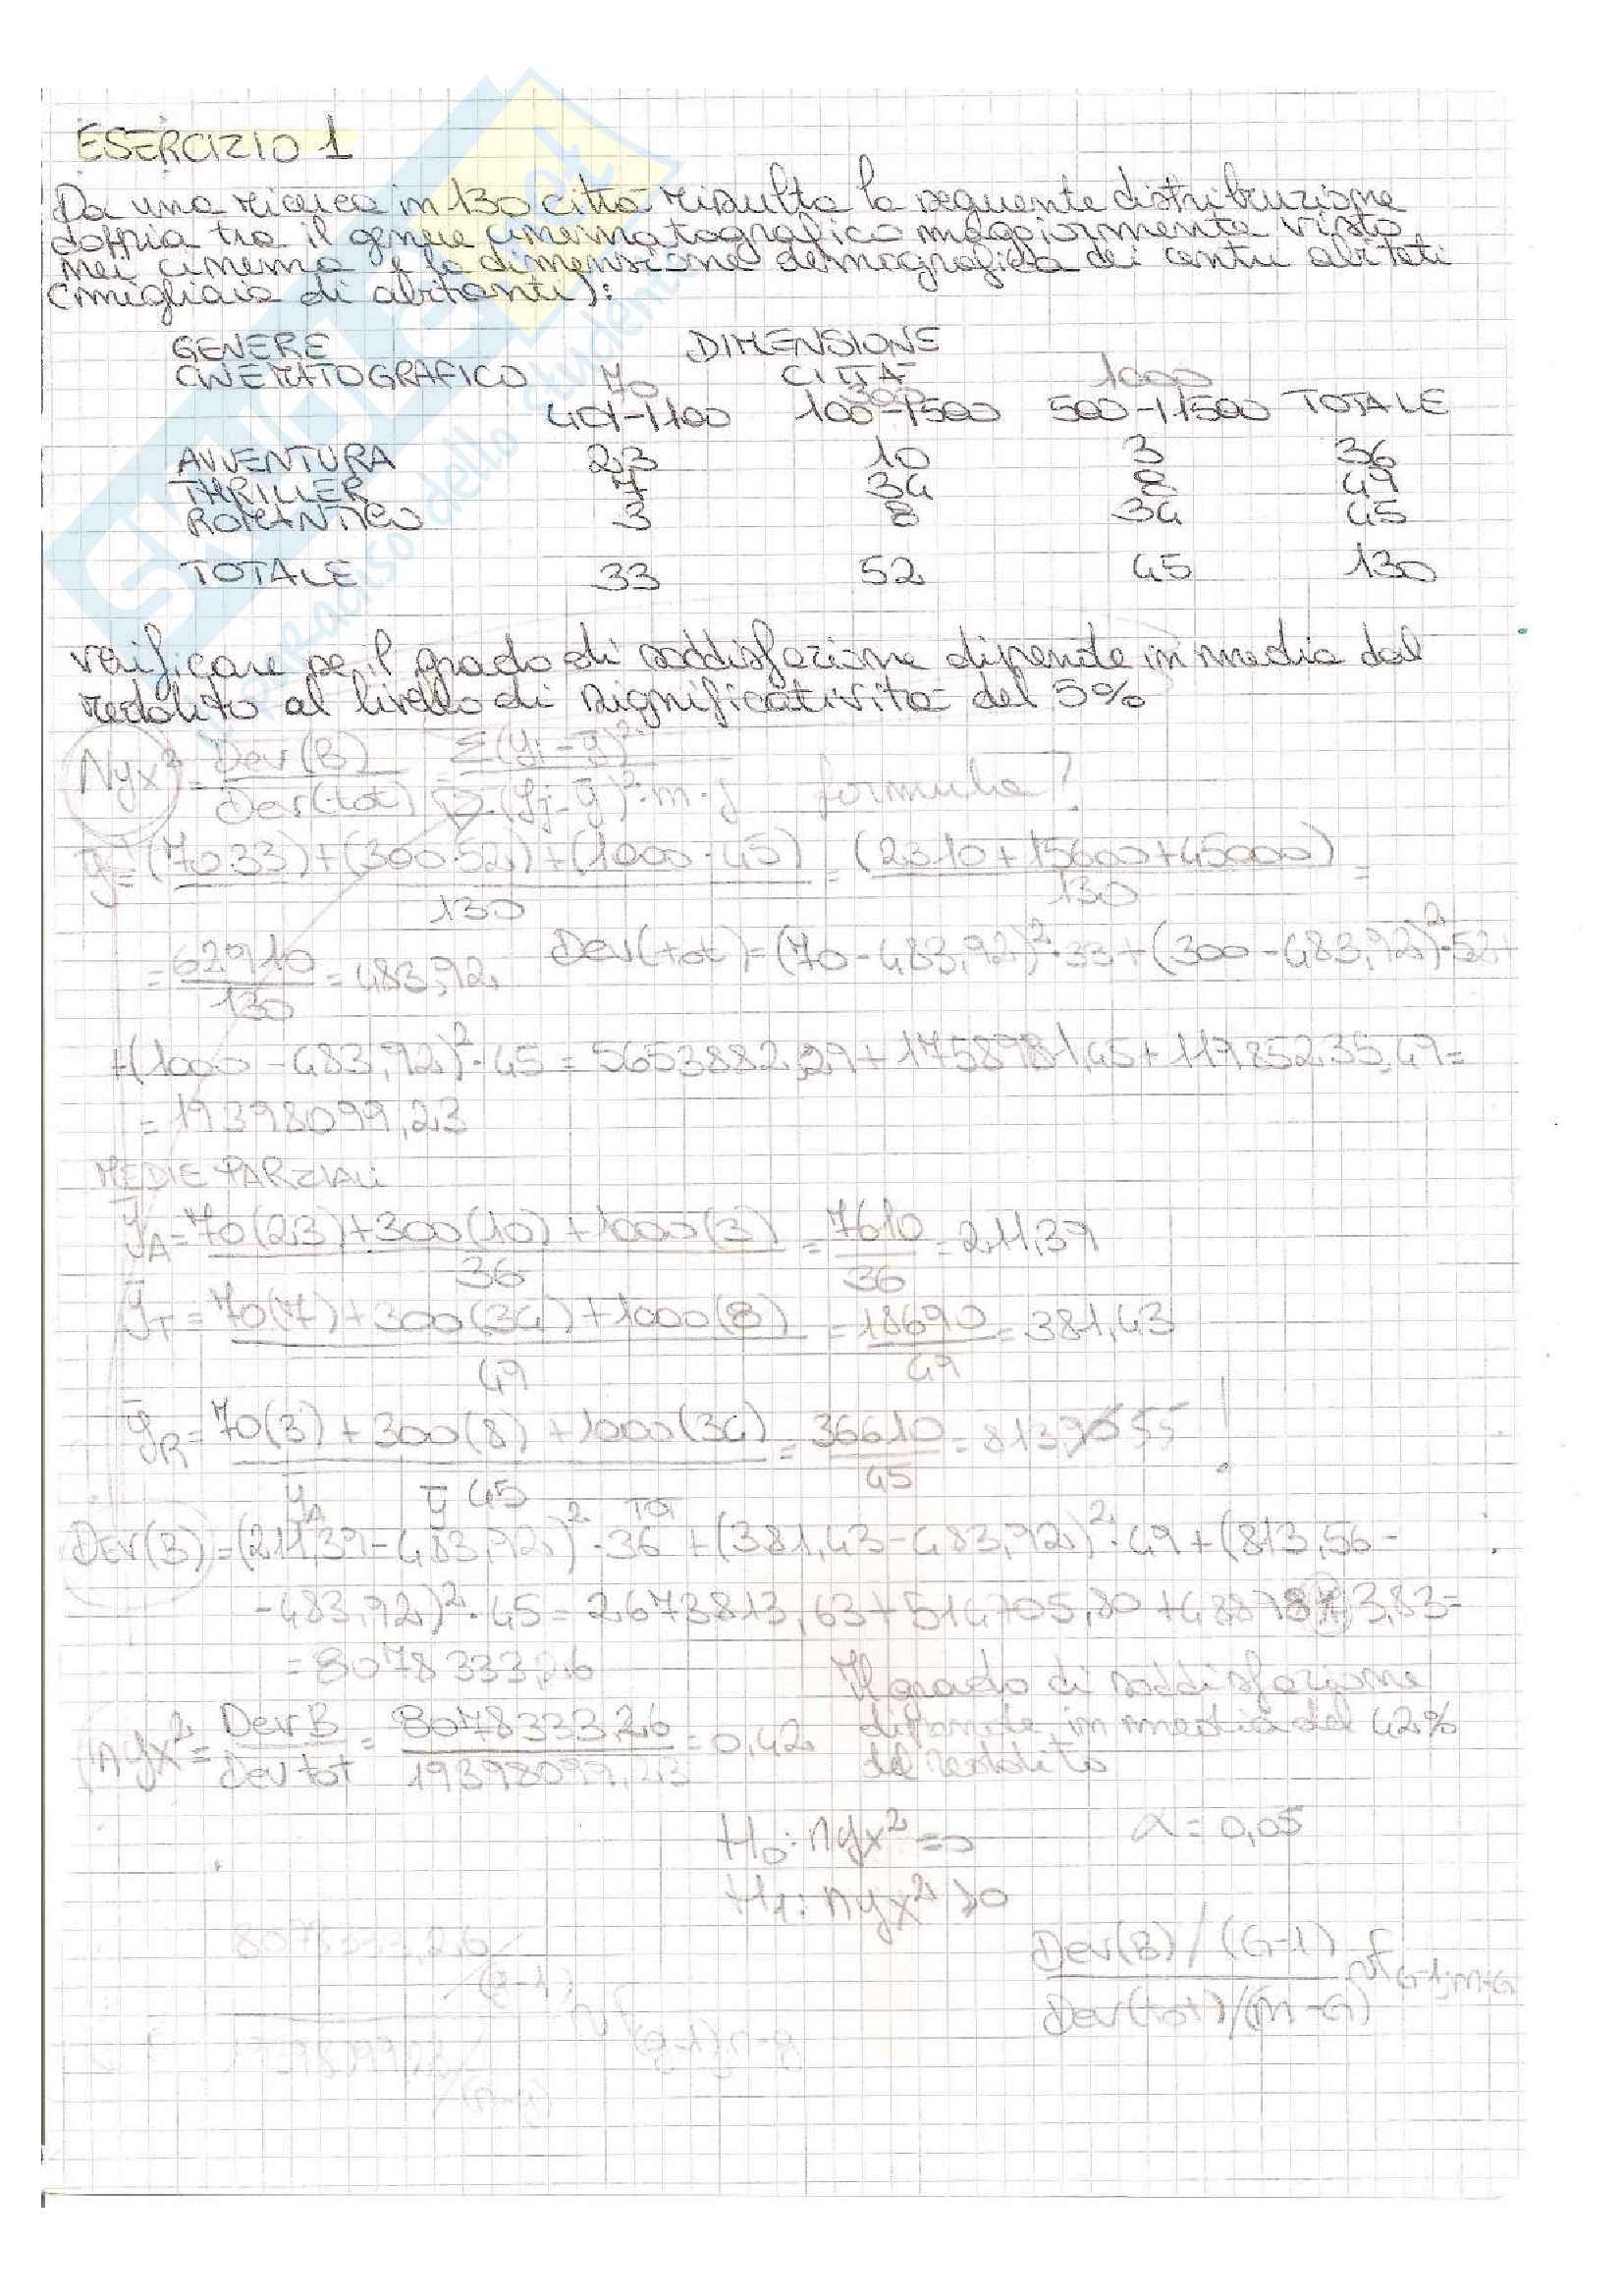 ESERCIZIO 1
Da una ricerca in 130 città risulta la seguente distribuzione
doppia tra il genere cinematografico maggiormente visto
nei cinema e la dimensione demografica dei centri abitati
(migliaia di abitanti):
GENERE DIMENSIONE
CINEMATOGRAFICO 70 CITTÀ 1000
300
40-|100 100-|500 500-|1500 TOTALE
AVVENTURA 23 10 3 36
THRILLER 7 34 8 49
ROMANTICO 3 8 34 45
TOTALE 33 52 45 130
verificare se il grado di soddisfazione dipende in media dal
reddito al livello di significatività del 5%
ηyx² = Dev(B) / Dev(tot) = Σ(yi-ȳ)² / Σ(yj-ȳ)²·n·j formula?
ȳ = (70·33)+(300·52)+(1000·45) / 130 = (2310+15600+45000) / 130 =
= 62910 / 130 = 483,92 Dev(tot)=(70-483,92)²·33+(300-483,92)²·52+
+(1000-483,92)²·45 = 5653882,29+1758981,45+11985235,49=
= 19398099,23
MEDIE PARZIALI
ȳA = 70(23)+300(10)+1000(3) / 36 = 7610 / 36 = 211,39
ȳT = 70(7)+300(34)+1000(8) / 49 = 18690 / 49 = 381,43
ȳR = 70(3)+300(8)+1000(34) / 45 = 36610 / 45 = 813,55 !
ȳA ȳ TOT
Dev(B)=(211,39-483,92)²·36+(381,43-483,92)²·49+(813,56-
-483,92)²·45 = 2673813,63+514705,80+4889813,83=
= 8078333,26
ηyx² = Dev B / Dev tot = 8078333,26 / 19398099,23 = 0,42 Il grado di soddisfazione
dipende in media del 42%
del reddito
H0: ηyx² = 0 α = 0,05
H1: ηyx² > 0
Dev(B)/(G-1) / Dev(tot)/(n-G) ~ F G-1; n-G
8078333,26/(g-1)
~F (g-1) n-g